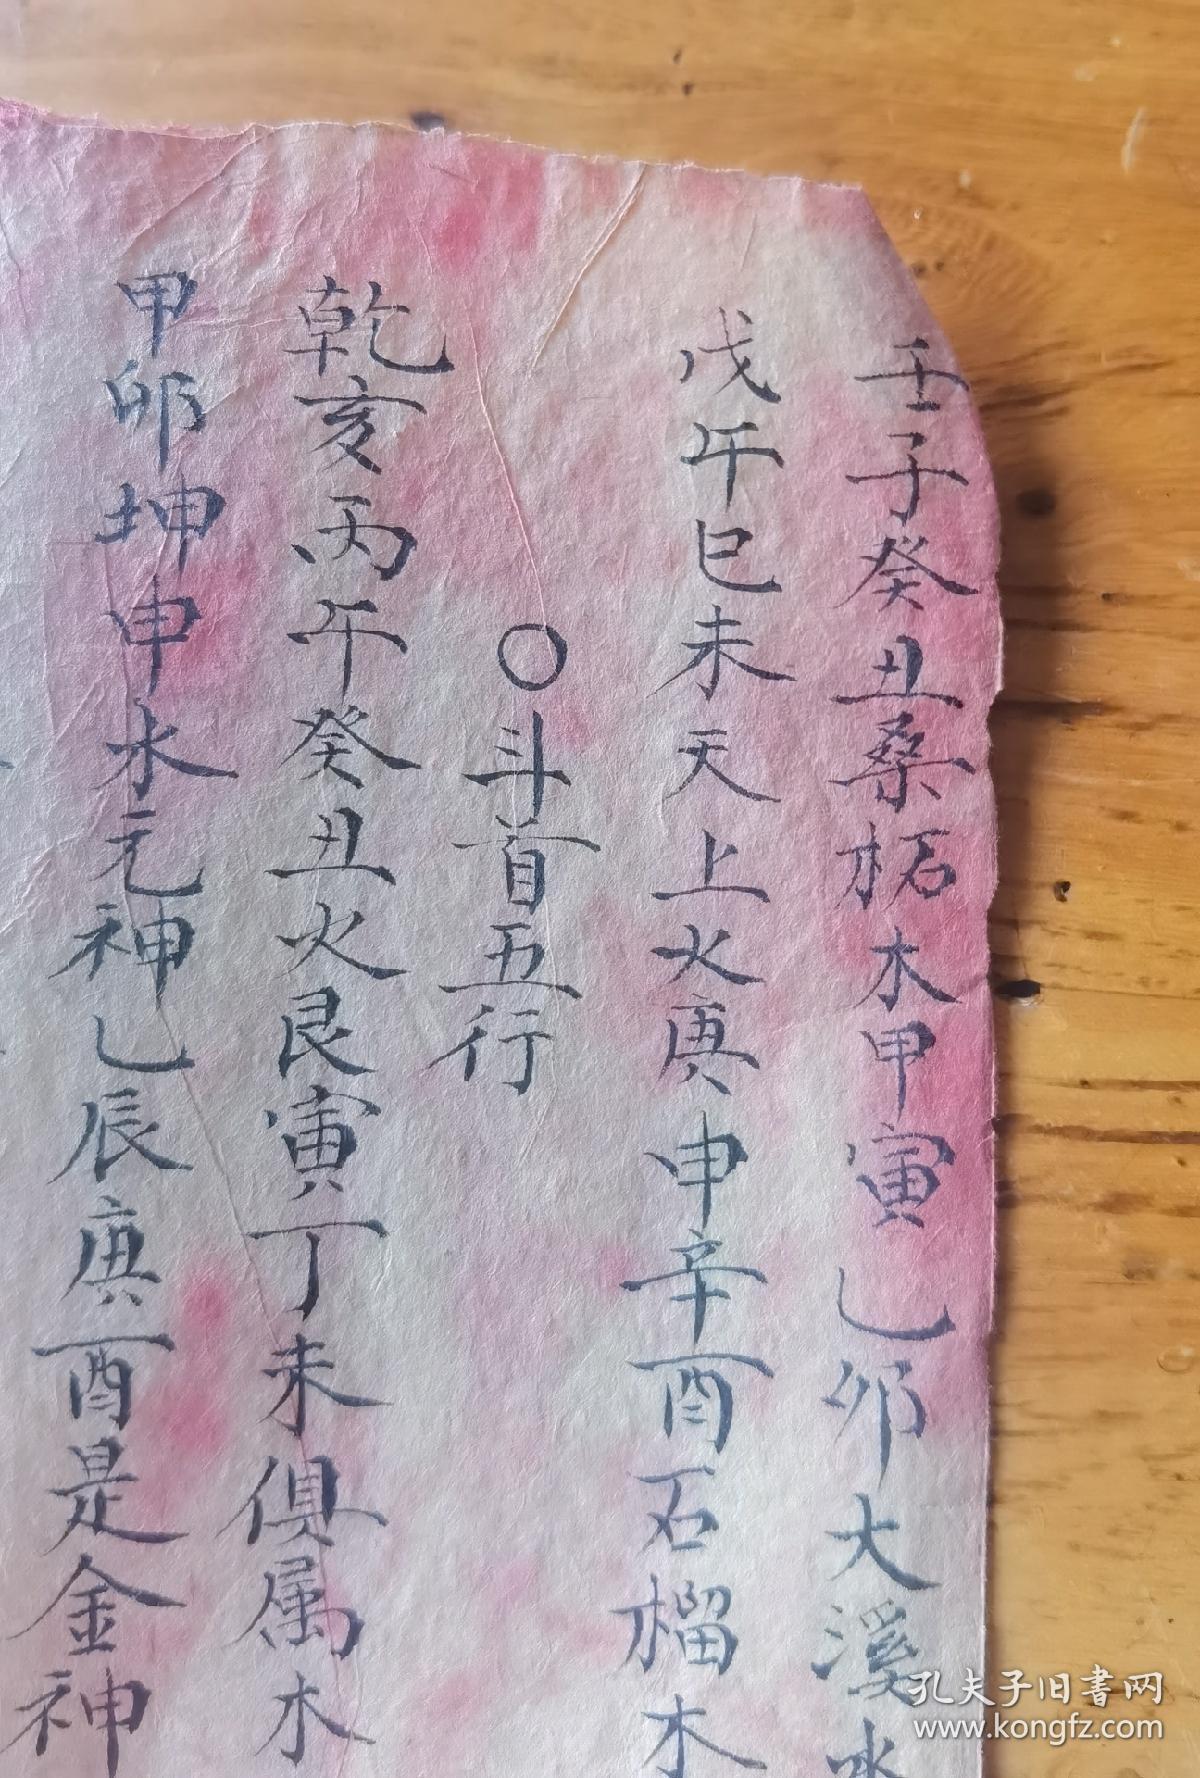 壬子癸丑桑柘木甲寅乙卯大溪水
戊午巳未天上火庚申辛酉石榴木
〇斗首五行
乾亥丙午癸丑火艮寅丁未俱属木
甲卯坤申水元神乙辰庚酉是金神
孔夫子旧书网
www.kongfz.com